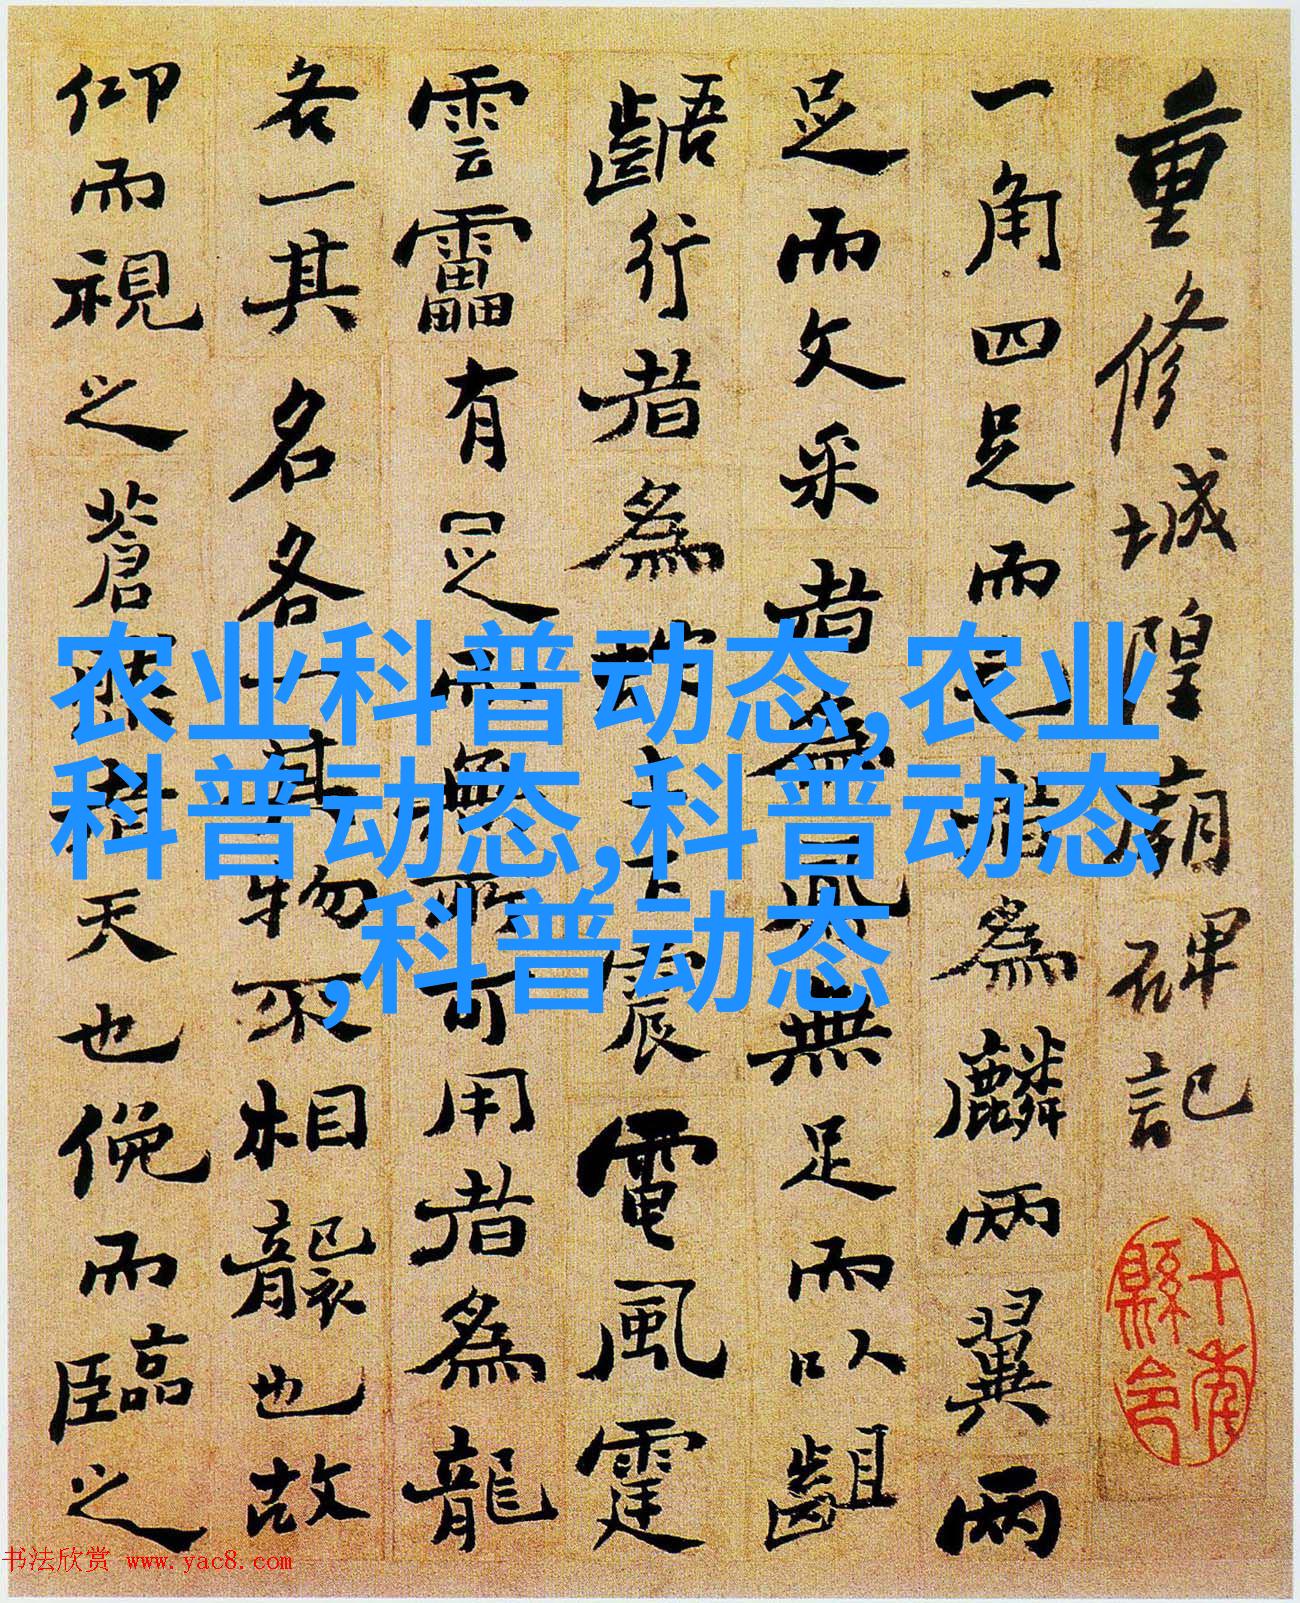 重修城隍廟碑記
一角四足而毛者為麟兩翼兩
足而文采者為鳳無足而以齟
齬行者為上下震電風霆
雲靁有足而無所可用者為龍
各一其名各一其物不相襲也故
仰而視之蒼然者天也俛而臨之
农业科普动态,农业
科普动态,科普动态
,科普动态
书法欣赏 www.yac8.com